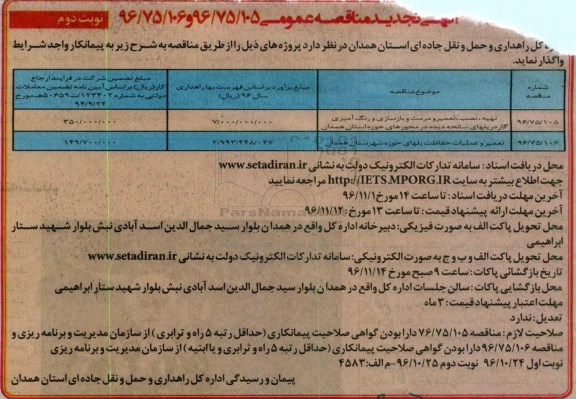 آگهی تجدید مناقصه عمومی ۹۶/۷۵/۱۰۵ و ۹۶/۷۵/۱۰۶
نوبت دوم
اداره کل راهداری و حمل و نقل جاده ای استان همدان در نظر دارد پروژه‌های ذیل را از طریق مناقصه به شرح زیر به پیمانکار واجد شرایط
واگذار نماید.
شماره مناقصه
موضوع مناقصه
مبلغ برآورد براساس فهرست بها راهداری سال ۹۶ (ریال)
مبلغ تضمین شرکت در فرآیند ارجاع کار (ریال) براساس آیین نامه تضمین معاملات دولتی به شماره ۱۲۳۴۰۲/ت۵۰۶۵۹هـ مورخ ۹۴/۹/۲۲
۹۶/۷۵/۱۰۵
تهیه، نصب، تعمیر و مرمت و بازسازی و رنگ آمیزی گاردریلهای سانحه دیده در محورهای حوزه استان همدان
۷/۰۰۰/۰۰۰/۰۰۰
۳۵۰/۰۰۰/۰۰۰
۹۶/۷۵/۱۰۶
تعمیر و عملیات حفاظت پلهای حوزه شهرستان همدان
۲/۹۹۳/۴۴۸/۰۴۷
۱۴۹/۷۰۰/۰۰۰
محل دریافت اسناد: سامانه تدارکات الکترونیک دولت به نشانی www.setadiran.ir
جهت اطلاع بیشتر به سایت http://IETS.MPORG.IR مراجعه نمایید
آخرین مهلت دریافت اسناد: تا ساعت ۱۴ مورخ ۹۶/۱۱/۱
آخرین مهلت ارائه پیشنهاد قیمت: تا ساعت ۱۳ مورخ ۹۶/۱۱/۱۲
محل تحویل پاکت الف به صورت فیزیکی: دبیرخانه اداره کل واقع در همدان بلوار سید جمال الدین اسد آبادی نبش بلوار شهید ستار
ابراهیمی
محل تحویل پاکت الف و ب و ج به صورت الکترونیکی: سامانه تدارکات الکترونیک دولت به نشانی www.setadiran.ir
تاریخ بازگشائی پاکات: ساعت ۹ صبح مورخ ۹۶/۱۱/۱۴
محل بازگشایی پاکات: سالن جلسات اداره کل واقع در همدان بلوار سید جمال الدین اسد آبادی نبش بلوار شهید ستار ابراهیمی
مهلت اعتبار پیشنهاد قیمت: ۳ ماه
تعدیل: ندارد
صلاحیت لازم: مناقصه ۷۶/۷۵/۱۰۵ دارا بودن گواهی صلاحیت پیمانکاری (حداقل رتبه ۵ راه و ترابری) از سازمان مدیریت و برنامه ریزی و
مناقصه ۹۶/۷۵/۱۰۶ دارا بودن گواهی صلاحیت پیمانکاری (حداقل رتبه ۵ راه و ترابری و یا ابنیه) از سازمان مدیریت و برنامه ریزی
نوبت اول ۹۶/۱۰/۲۴ نوبت دوم ۹۶/۱۰/۲۵-م الف: ۴۵۸۳
پیمان و رسیدگی اداره کل راهداری و حمل و نقل جاده ای استان همدان